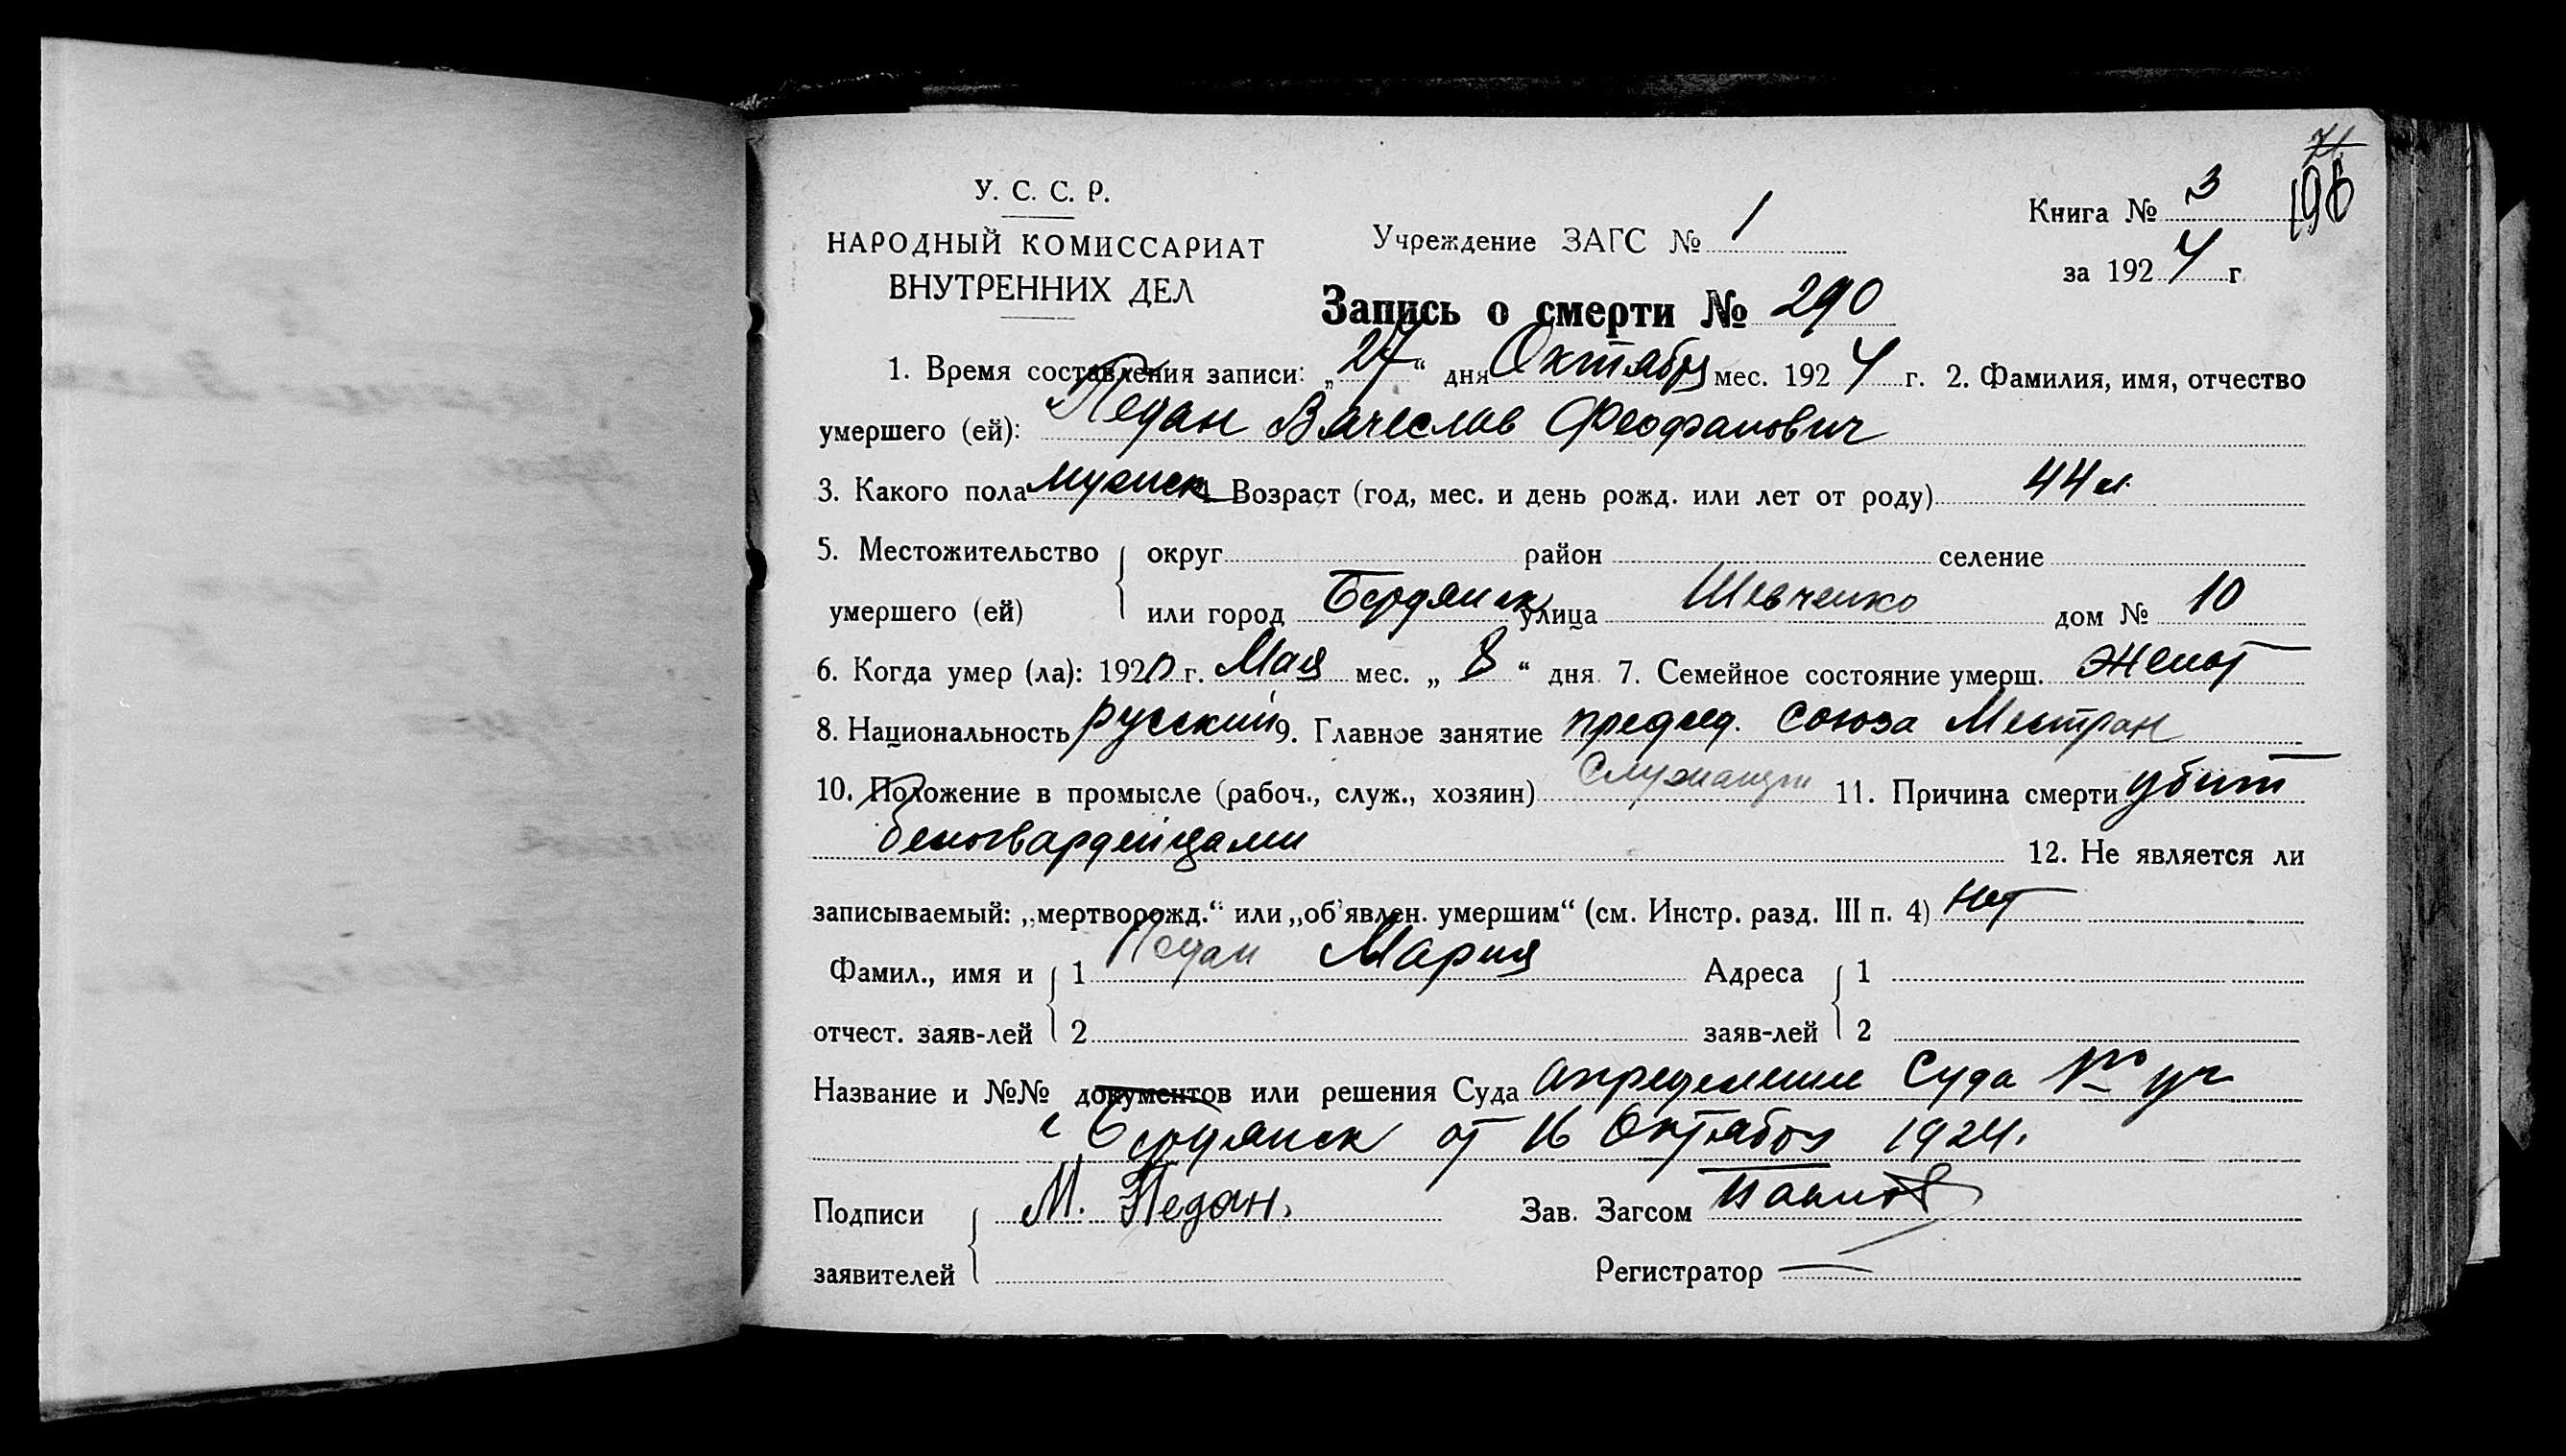 71
196
У. С. С. Р.
НАРОДНЫЙ КОМИССАРИАТ
ВНУТРЕННИХ ДЕЛ
Учреждение ЗАГС № 1
Книга № 3
за 1924 г.
Запись о смерти № 290
1. Время составления записи: „27“ дня Октября мес. 1924 г. 2. Фамилия, имя, отчество
умершего (ей): Педан Вячеслав Феофанович
3. Какого пола мужск 4. Возраст (год, мес. и день рожд. или лет от роду) 44 л.
5. Местожительство округ район селение
умершего (ей) или город Бердянск улица Шевченко дом № 10
6. Когда умер (ла): 1920 г. Мая мес. „ 8 “ дня. 7. Семейное состояние умерш. Женат
8. Национальность русский 9. Главное занятие председ. союза Местран
10. Положение в промысле (рабоч., служ., хозяин) Служащий 11. Причина смерти убит
белогвардейцами 12. Не является ли
записываемый: „мертворожд.“ или „об'явлен. умершим“ (см. Инстр. разд. III п. 4) Нет
Фамил., имя и 1 Педан Мария Адреса 1
отчест. заяв-лей 2 заяв-лей 2
Название и №№ документов или решения Суда определение Суда 1го уч
г Бердянск от 16 Октября 1924.
Подписи М. Педан. Зав. Загсом
заявителей Регистратор